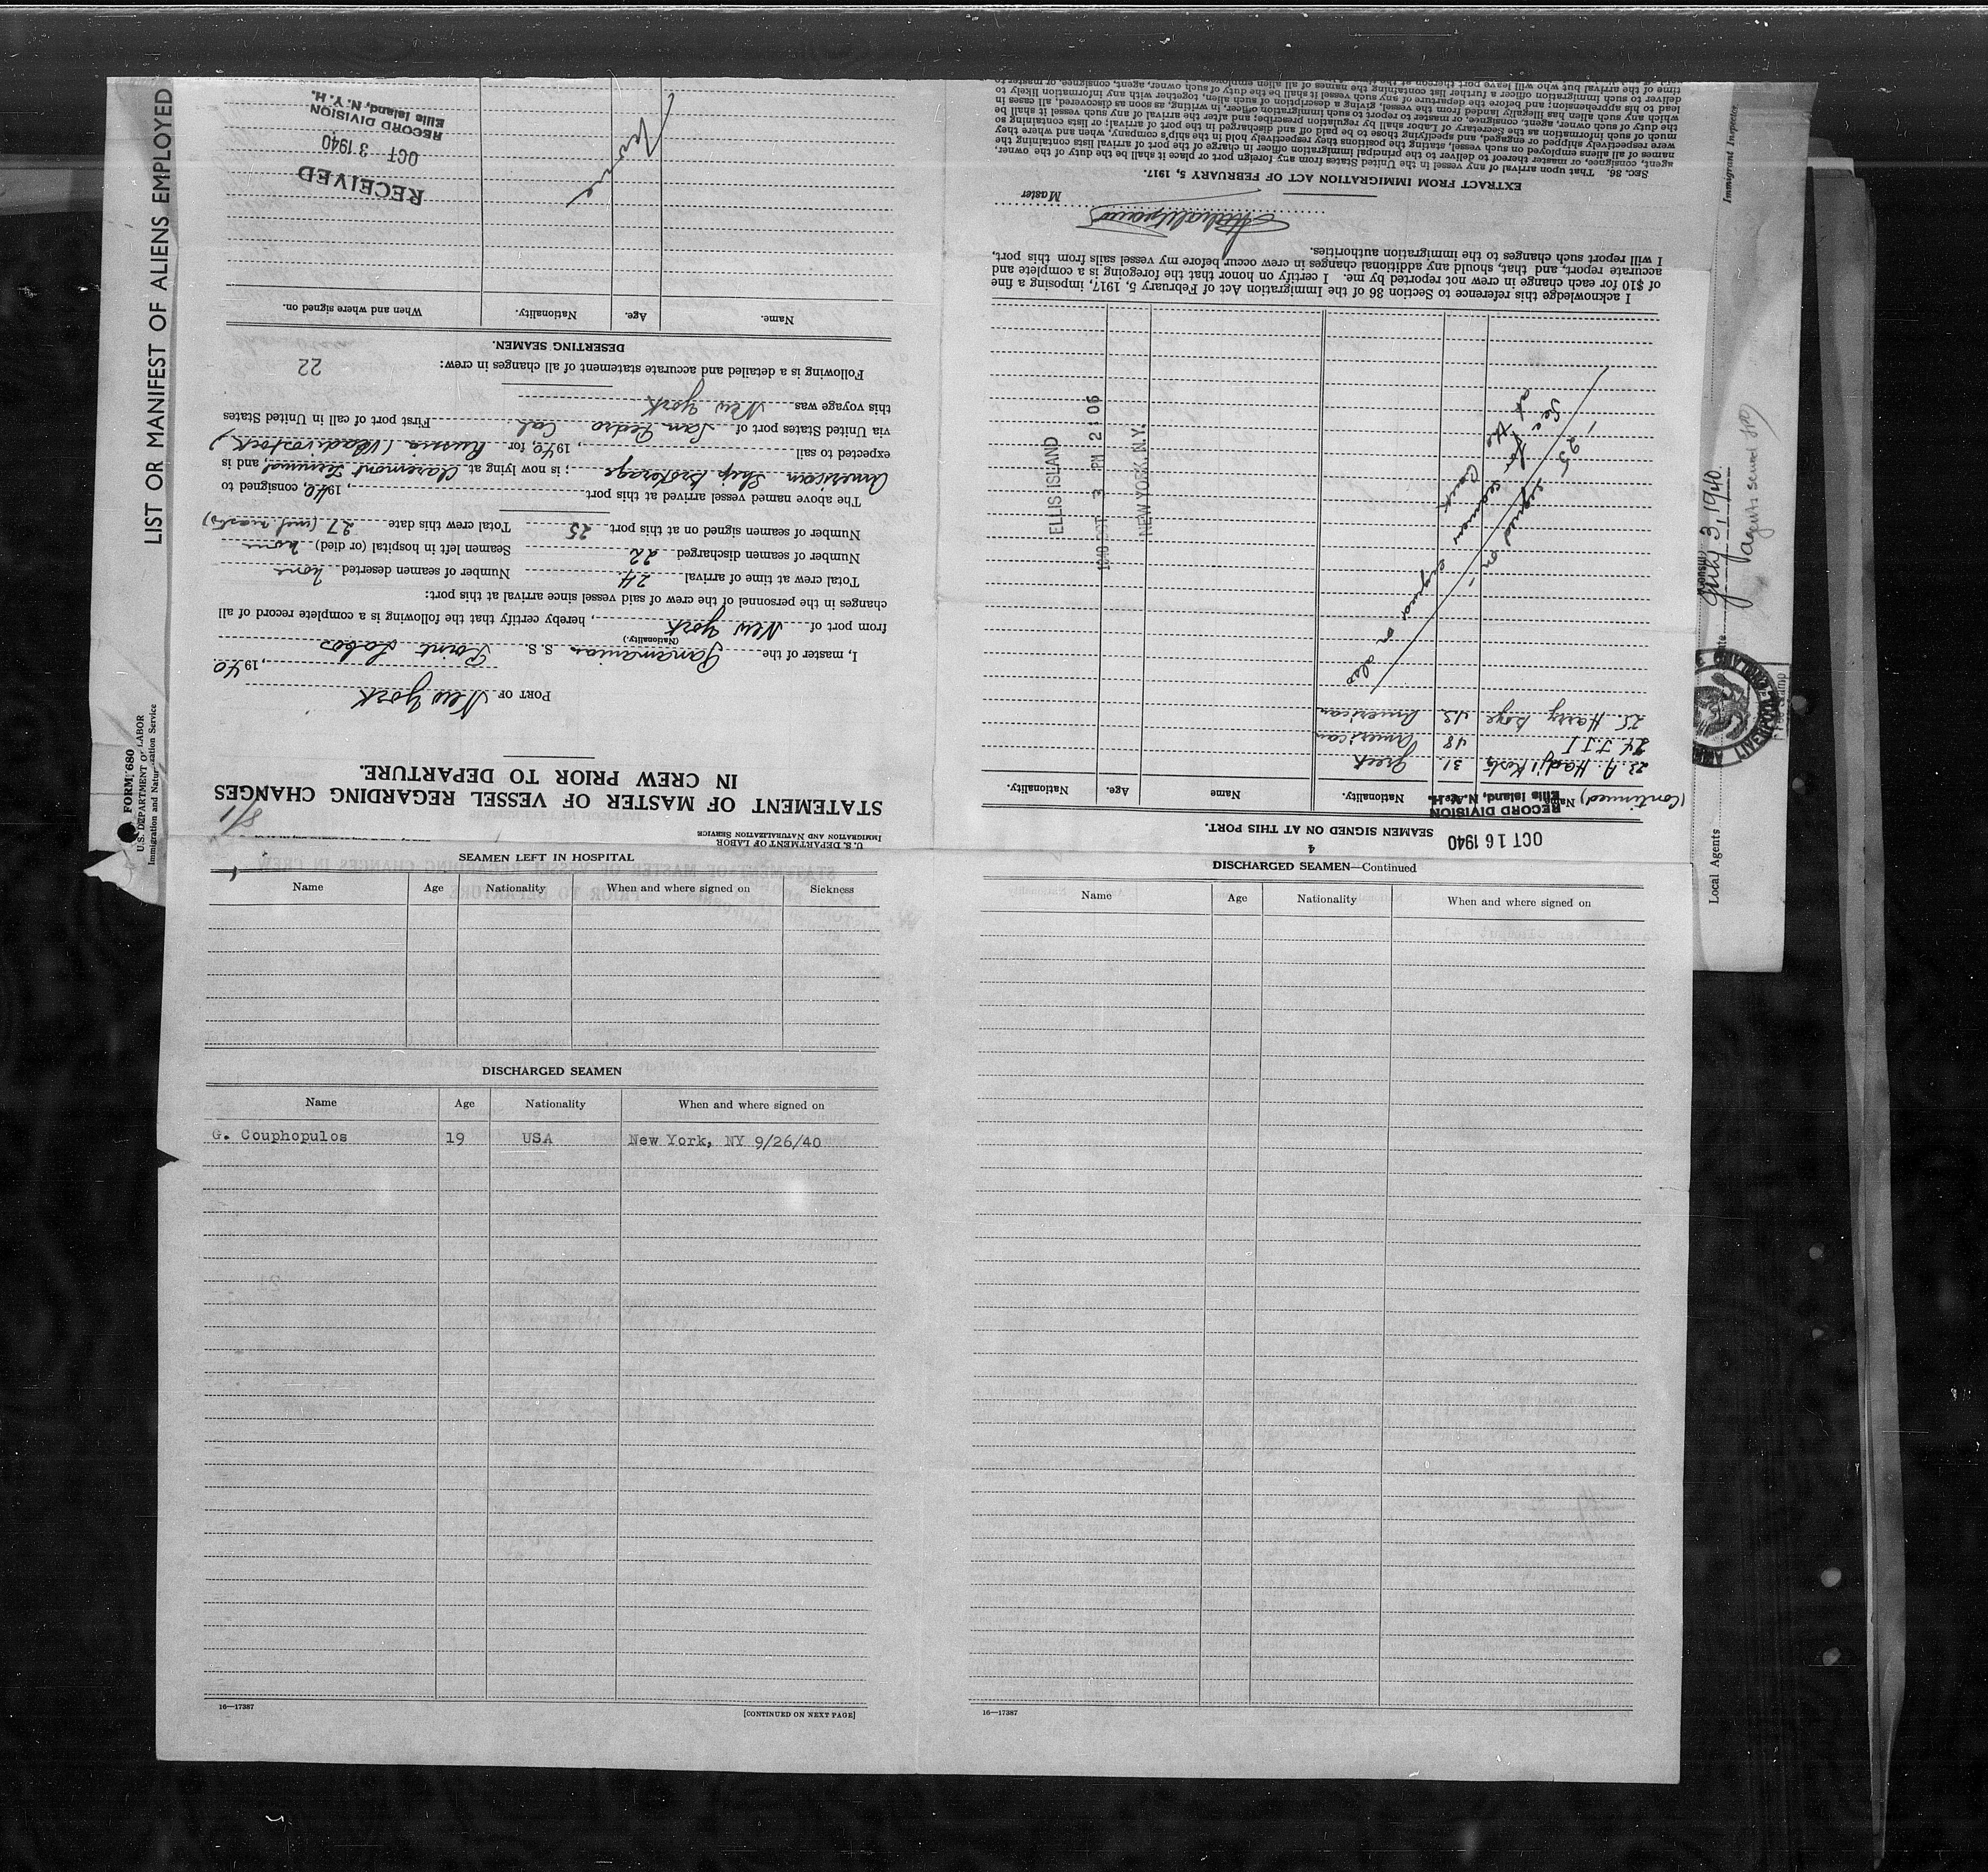 LIST OR MANIFEST OF ALIENS EMPLOYED
FORM 680
U.S. DEPARTMENT OF LABOR
Immigration and Naturalization Service
U. S. DEPARTMENT OF LABOR
IMMIGRATION AND NATURALIZATION SERVICE
STATEMENT OF MASTER OF VESSEL REGARDING CHANGES
IN CREW PRIOR TO DEPARTURE.
PORT OF New York
, 1940
I, master of the Panamanian S. S. Point Lobos
(Nationality.)
from port of New York, hereby certify that the following is a complete record of all
changes in the personnel of the crew of said vessel since arrival at this port:
Total crew at time of arrival 24 Number of seamen deserted none
Number of seamen discharged 22 Seamen left in hospital (or died) none
Number of seamen signed on at this port 25 Total crew this date 27 (incl. master)
The above named vessel arrived at this port , 1940, consigned to
American Ship Brokerage; is now lying at Claremont Terminal, and is
expected to sail , 1940, for Russia (Vladivostock)
via United States port of San Pedro Cal First port of call in United States
this voyage was New York
Following is a detailed and accurate statement of all changes in crew: 22
DESERTING SEAMEN.
Name. Age. Nationality. When and where signed on.
None
RECEIVED
OCT 3 1940
RECORD DIVISION
Ellis Island, N. Y. H.
OCT 16 1940
RECORD DIVISION
Ellis Island, N. Y. H.
4
SEAMEN SIGNED ON AT THIS PORT.
(Continued) Name Age. Nationality. Name Age. Nationality.
23. A. Hadjikosts 31 Greek
24. J. J. I 48 American
25. Harry Boye 43 American
25 signed on
ELLIS ISLAND
1940 OCT 3 PM 2:06
NEW YORK, N. Y.
I acknowledge this reference to Section 36 of the Immigration Act of February 5, 1917, imposing a fine
of $10 for each change in crew not reported by me. I certify on honor that the foregoing is a complete and
accurate report, and that, should any additional changes in crew occur before my vessel sails from this port,
I will report such changes to the immigration authorities.
Master
EXTRACT FROM IMMIGRATION ACT OF FEBRUARY 5, 1917.
SEC. 36. That upon arrival of any vessel in the United States from any foreign port or place it shall be the duty of the owner,
agent, consignee, or master thereof to deliver to the principal immigration officer in charge of the port of arrival lists containing the
names of all aliens employed on such vessel, stating the positions they respectively hold in the ship's company, when and where they
were respectively shipped or engaged, and specifying those to be paid off and discharged in the port of arrival; or lists containing so
much of such information as the Secretary of Labor shall by regulation prescribe; and after the arrival of any such vessel it shall be
the duty of such owner, agent, consignee, or master to report to such immigration officer, in writing, as soon as discovered, all cases in
which any such alien has illegally landed from the vessel, giving a description of such alien, together with any information likely to
lead to his apprehension; and before the departure of any such vessel it shall be the duty of such owner, agent, consignee, or master to
deliver to such immigration officer a further list containing the names of all alien employees
time of the arrival but who will leave port thereon at the time
Immigrant Inspector.
July 3, 1940.
Local Agents
SEAMEN LEFT IN HOSPITAL
Name Age Nationality When and where signed on Sickness
DISCHARGED SEAMEN
Name Age Nationality When and where signed on
G. Couphopulos 19 USA New York, NY 9/26/40
16—17387
[CONTINUED ON NEXT PAGE]
DISCHARGED SEAMEN—Continued
Name Age Nationality When and where signed on
16—17387